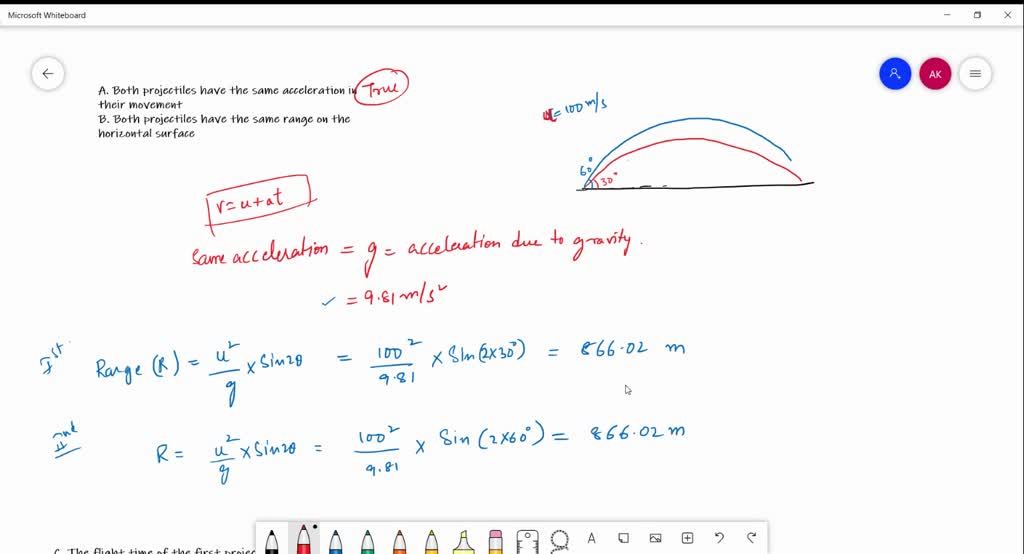 Microsoft Whiteboard
AK
A. Both projectiles have the same acceleration in
their movement
True
B. Both projectiles have the same range on the
horizontal surface
u = 100 m/s
60°
30°
v = u + at
same acceleration = g = acceleration due to gravity.
✓ = 9.81 m/s²
Ist Range (R) = u²/g × sin2θ = 100²/9.81 × sin(2×30°) = 866.02 m
IInd R = u²/g × sin2θ = 100²/9.81 × sin(2×60°) = 866.02 m
A
C. The flight time of the first projec